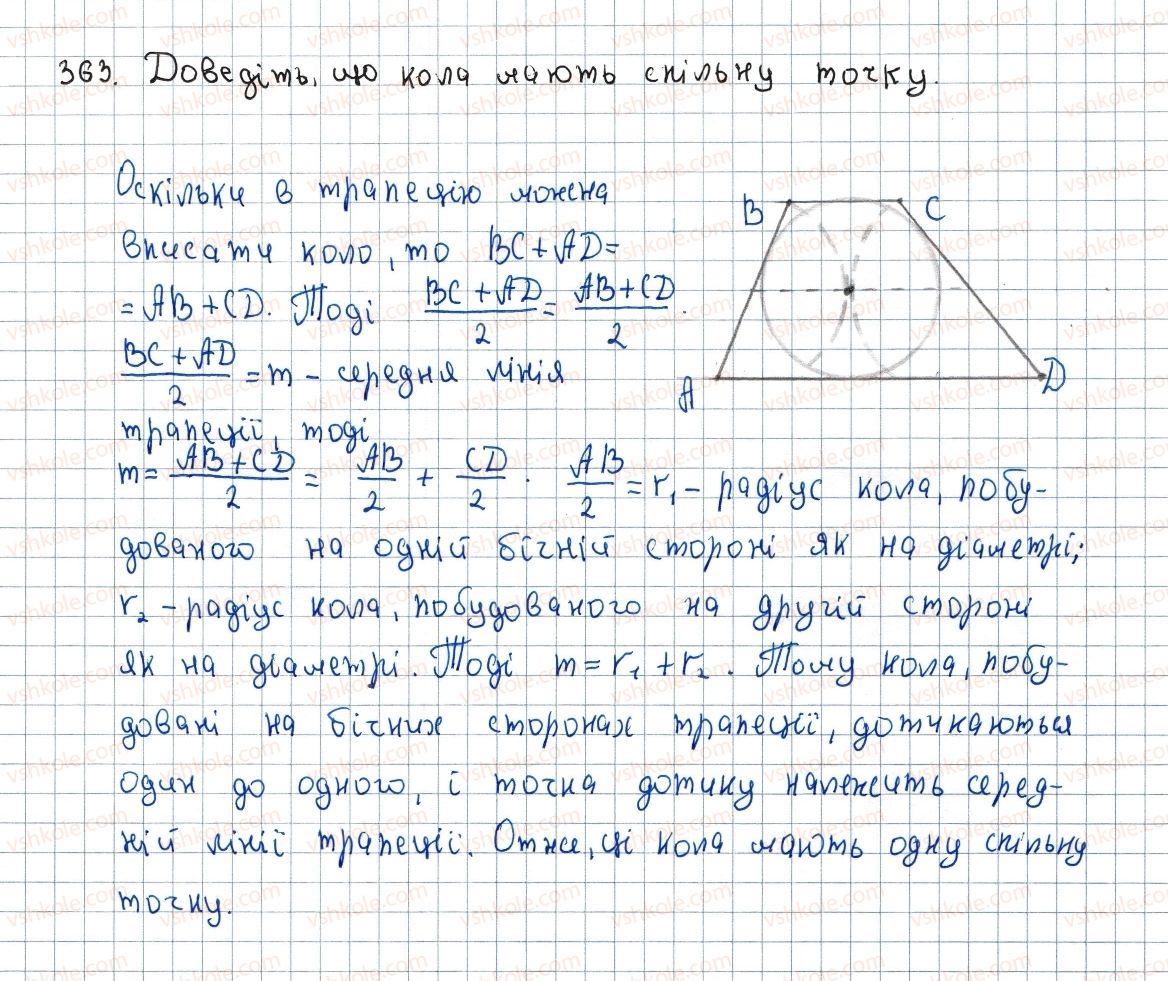 363. Доведіть, що кола мають спільну точку.
Оскільки в трапецію можна
вписати коло, то BC + AD =
= AB + CD. Тоді (BC + AD)/2 = (AB + CD)/2.
(BC + AD)/2 = m – середня лінія
трапеції, тоді
m = (AB + CD)/2 = AB/2 + CD/2. AB/2 = r₁ – радіус кола, побу-
дованого на одній бічній стороні як на діаметрі;
r₂ – радіус кола, побудованого на другій стороні
як на діаметрі. Тоді m = r₁ + r₂. Тому кола, побу-
довані на бічних сторонах трапеції, дотикаються
один до одного, і точка дотику належить серед-
ній лінії трапеції. Отже, ці кола мають одну спільну
точку.
B C
A D
vshkole.com